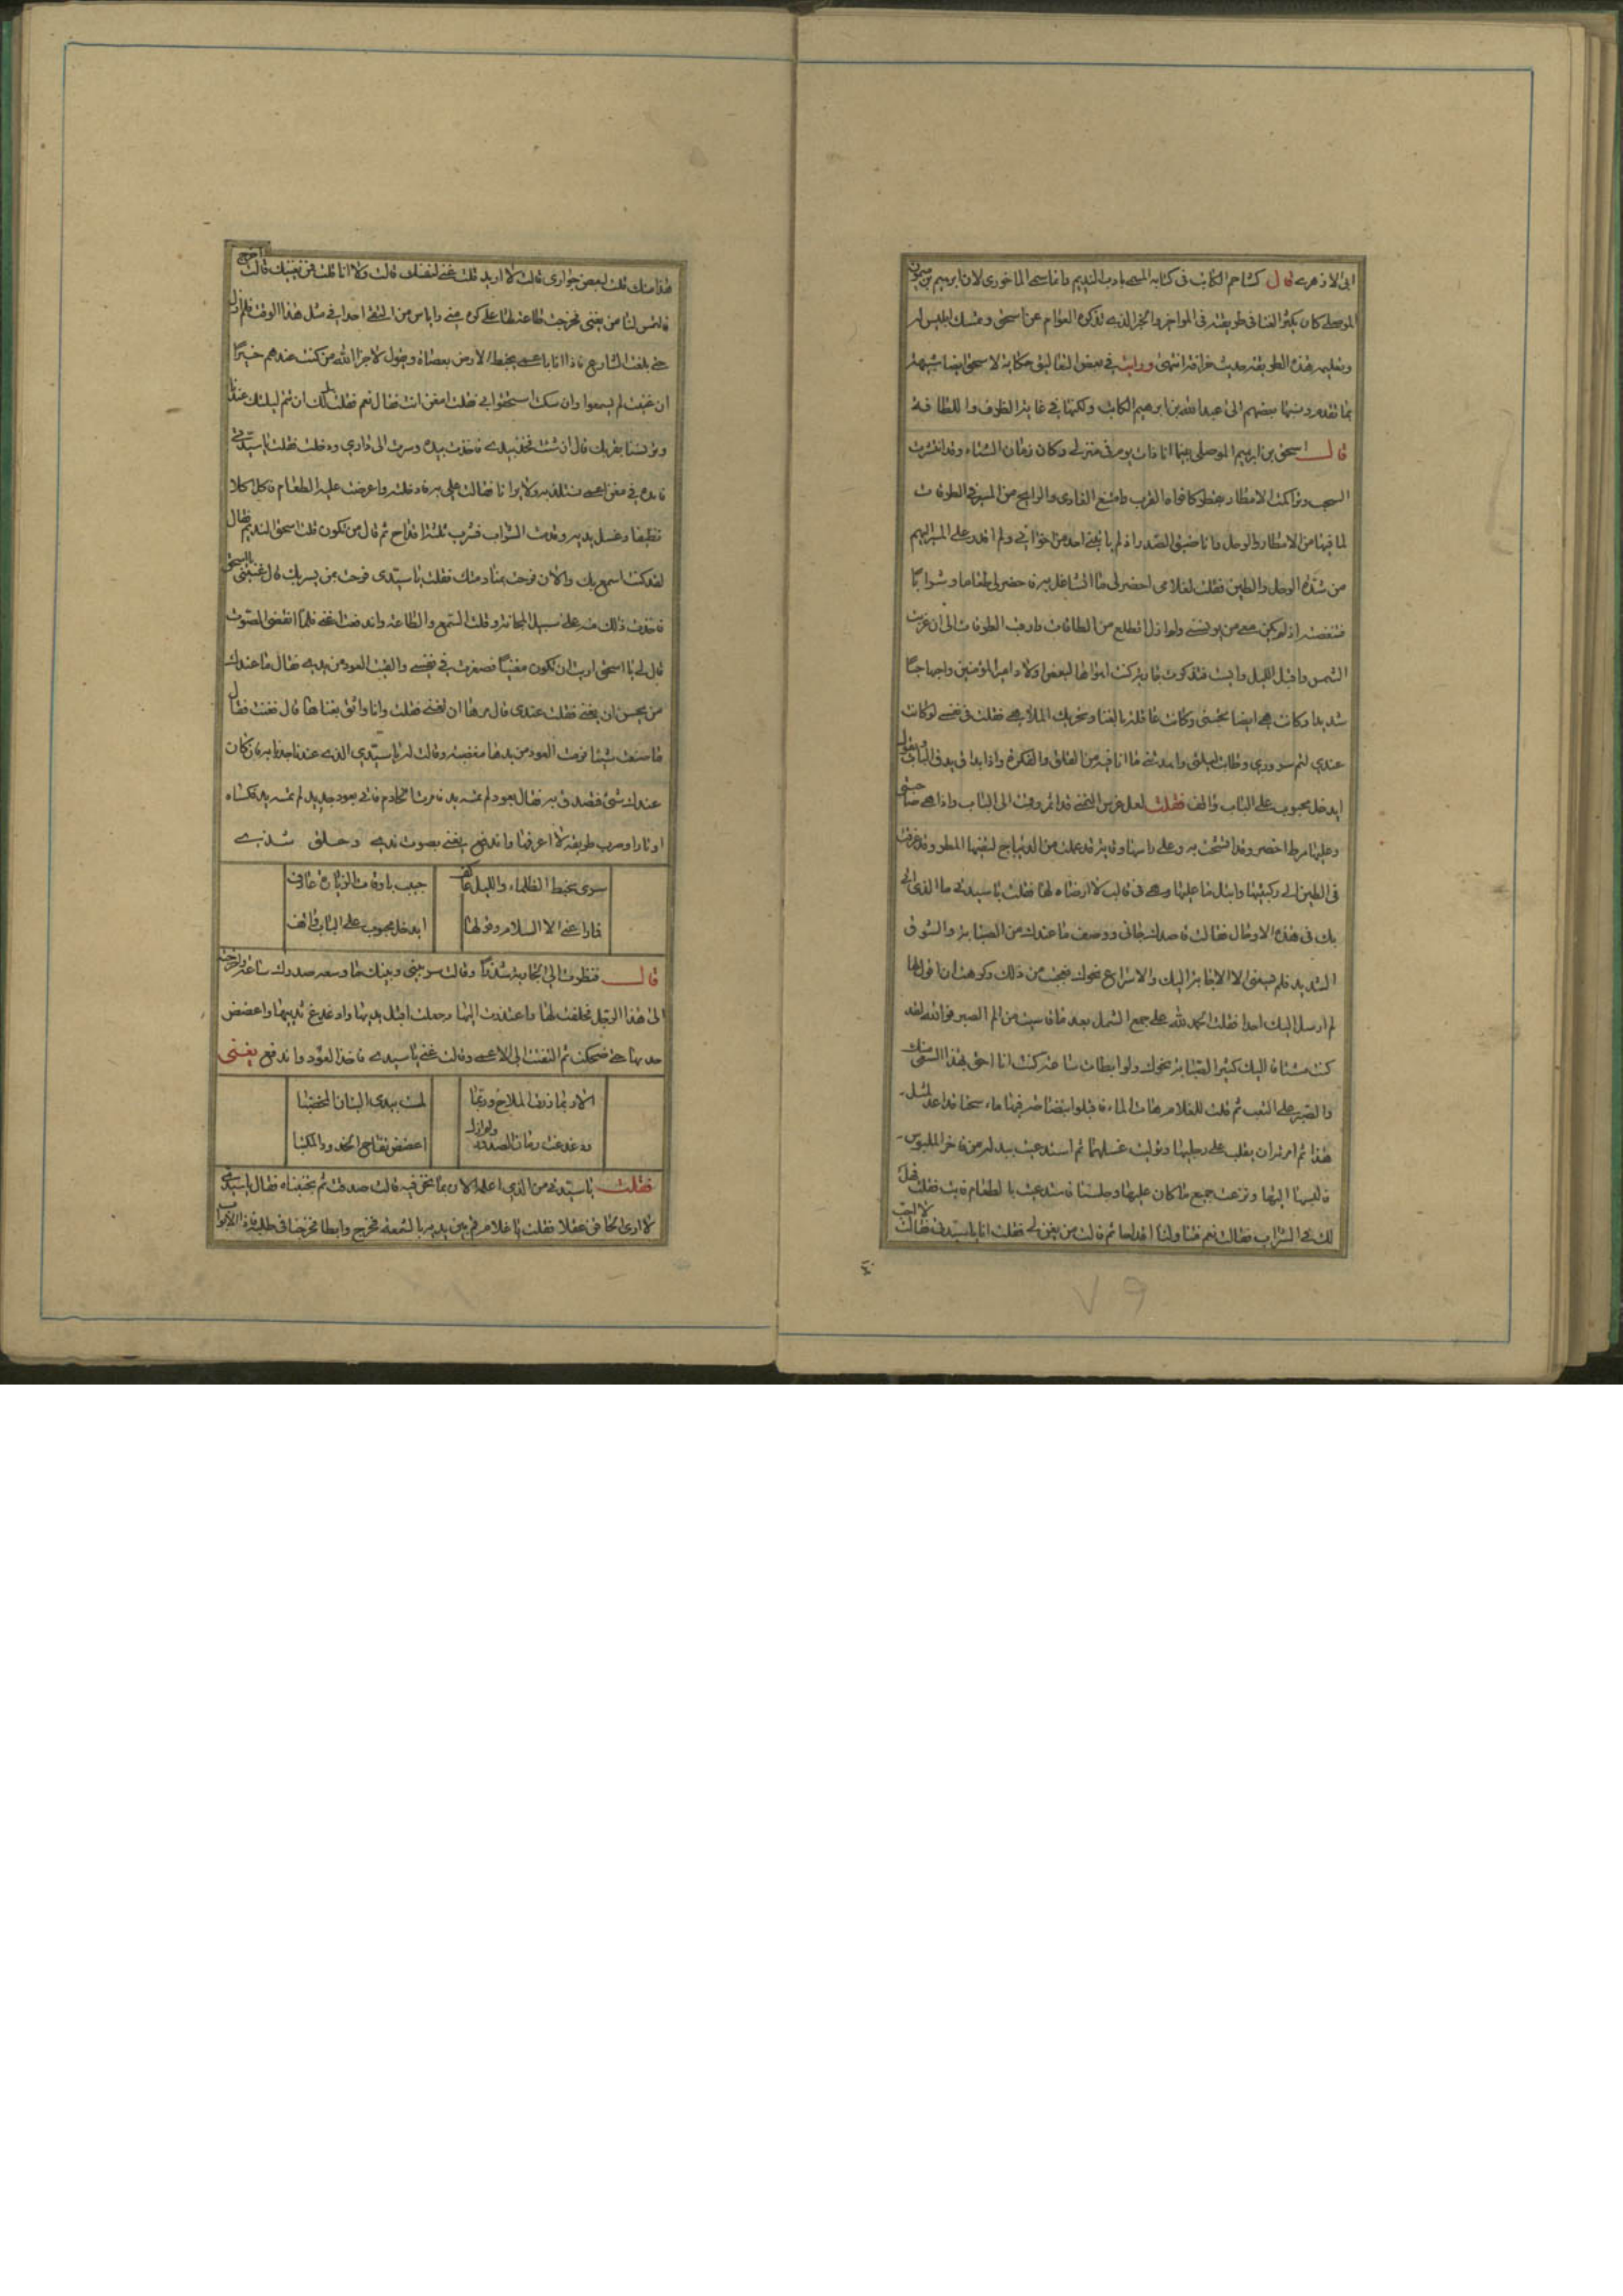 ابى الازهرى قال كشاجم الكاتب فى كتابه المسمى بادب النديم وانما سمى الماخورى لان ابرهيم بن ميمون
الموصلى كان يكثر الغنا فى طريقته فى المواخر والخبر الذى تذكره العوام عن اسحق وتمسك ابليس له
وتعليمه هذه الطريقة حديث خرافة انتهى ورايت فى بعض التعاليق حكاية لاسحق ايضا شبيهة
بما تقدم ونسبها بعضهم الى عبدالله بن ابرهيم الكاتب ولكنها فى غاية الظرف واللطافة
قال اسحق بن ابرهيم الموصلى بينما انا ذات يوم فى منزلى وكان زمان الشتاء وقد انتشرت
السحب وتراكمت الامطار بقطر كافواه القرب وامتنع الغادى والرايح من المسير فى الطرقات
لما فيها من الامطار والوحل وانا ضيق الصدر اذ لم ياتينى احد من اخوانى ولم اقدر على المسير اليهم
من شدة الوحل والطين فقلت لغلامى احضر لى ما اتشاغل به فاحضر لى طعاما وشرابا
فتنغصت اذ لم يكن معى من يونسنى ولم ازل اتطلع من الطاقات وارقب الطرقات الى ان غربت
الشمس واقبل الليل وايست فتذكرت جارية كنت اهواها لبعض اولاد امير المؤمنين واحبها حبا
شديدا وكانت هى ايضا تحبنى وكانت عاقلة بالغنا وتحريك الملاهى فقلت فى نفسى لو كانت
عندى لتم سرورى وطابت ليلتى وابعدتنى مما انا فيه من القلق والفكرة واذا بداق يدق الباب ويقول
ايدخل محبوب على الباب واقف فقلت لعل غرس التمنى قد اثمر وقمت الى الباب واذا هى صاحبتى
وعليها مرط اخضر وقد اتشحت به وعلى راسها وقاية قد عملت من الديباج لتقيها المطر وقد غرقت
فى الطين الى ركبتيها وابتل ما عليها وهى فى قالب لا ارضاه لها فقلت يا سيدتى ما الذى اتى
بك فى هذه الاوحال فقالت قاصدك جانى ووصف ما عندك من الصبابة والشوق
الشديد فلم يسعنى الا الاجابة اليك والاسراع نحوك فعجبت من ذلك وكرهت ان اقول لها
لم ارسل اليك احدا فقلت الحمد لله على جمع الشمل بعد ما قاسيت من الم الصبر فوالله لقد
كنت مشتاقا اليك كثير الصبابة نحوك ولو ابطات ساعة كنت انا احق بهذا السعى منك
والصبر على التعب ثم قلت للغلام هات الماء فاقبل وايضا ضرفيها ماء سخنا قد اعد لمثل
هذا ثم امرته ان يقلب على رجليها وتوليت غسلهما ثم استدعيت ببدلة من فاخر الملبوس
فالبستها اليها ونزعت جميع ما كان عليها وجلسنا فاستدعيت بالطعام فابت فقلت فهل
لك فى الشراب فقالت نعم فتناولنا اقداحا ثم قالت من يغنى لى فقلت انا يا سيدتى فقالت لا احب
هذا منك قلت لبعض جوارى قالت لا اريد قلت غنى لنفسك قالت ولا انا قلت فمن يغنيك قالت اخرج
فالتمس لنا من يغنى فخرجت طاعة لها على كره منى واياس من ان القى احدا فى مثل هذا الوقت فلم ازل
حتى بلغت الشارع فاذا انا باعمى يخبط الارض بعصاه ويقول لا جزا الله من كنت عندهم خيرا
ان غنيت لم يسمعوا وان سكت استخفوا بى فقلت امغن انت فقال نعم فقلت هل لك ان تتم ليلتك عندنا
وتونسنا بقربك قال ان شئت فخذ بيدى فاخذت بيده وسرت الى دارى ودخلت فقلت يا سيدتى
قد جئت بمغن اعمى نلتذ به ولا يرانا فقالت على به فادخلته واعرضت عليه الطعام فاكل اكلا
نظيفا وغسل يديه وقدمت الشراب فشرب ثلثة اقداح ثم قال من تكون قلت اسحق النديم فقال
لقد كنت اسمع بك والان فرحت بمنادمتك فقلت يا سيدى فرحت بمن يسر بك قال غننى يا اسحق
فاخذت ذلك منه على سبيل المجانة وقلت السمع والطاعة واندفعت اغنى فلما انقضى الصوت
قال لى يا اسحق قاربت ان تكون مغنيا فصغرت فى نفسى والقيت العود من يدى فقال ما عندك
من يحسن ان يغنى فقلت عندى قال مرها ان تغنى فقلت وانا واثق بغناها قال فغنت فقال
ما صنعت شيئا فرمت العود من يدها مغضبة وقالت له يا سيدى الذى عندنا جدنا به فان كان
عندك شئ فتصدق به فقال بعود لم تمسه يد فامرت الخادم فاتى بعود جديد لم تمسه يد فكساه
اوتارا وضرب طريقة لا اعرفها واندفع يغنى بصوت ندى وحلق شذى
سرى يخبط الظلماء والليل عاكف حبيب باوقات الزيارة عارف
فما راعنى الا السلام وقولها ايدخل محبوب على الباب واقف
قال فنظرت الى الجارية شذرا وقالت سر بينى وبينك ما وسعه صدرك ساعة واخرجته
الى هذا الرجل فحلفت لها واعتذرت اليها وجعلت اقبل يديها وادغدغ ثدييها واعضض
خديها حتى ضحكت ثم التفتت الى الاعمى وقالت غنى يا سيدى فاخذ العود واندفع يغنى
الا ربما زرت الملاح وربما لمست بيدى البنان المخضبا
ودغدغت رمان الصدور ولم ازل اعضض تفاح الخدود المكتبا
فقلت يا سيدتى من الذى اعلمه الان بما نحن فيه قالت صدقت ثم تجنبناه فقال يا سيدتى
لا ارى الحاقن عقلا فقلت يا غلام قم بين يديه بالشمعة فخرج وابطا فخرجنا فى طلبه فاذا الابواب
۷۹